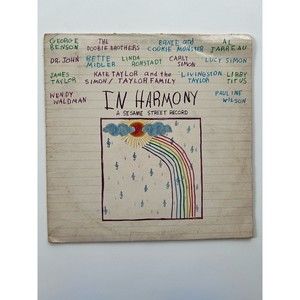 GEORGE BENSON THE DOOBIE BROTHERS ERNIE and COOKIE MONSTER AL JARREAU
DR. JOHN BETTE MIDLER LINDA RONSTADT CARLY SIMON LUCY SIMON
JAMES TAYLOR KATE TAYLOR and the SIMON/TAYLOR FAMILY LIVINGSTON TAYLOR LIBBY TITUS
WENDY WALDMAN PAULINE WILSON
IN HARMONY
A SESAME STREET RECORD